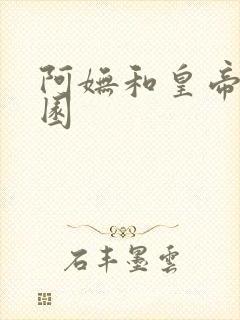 阿嫵和皇帝
園
石丰墨雲